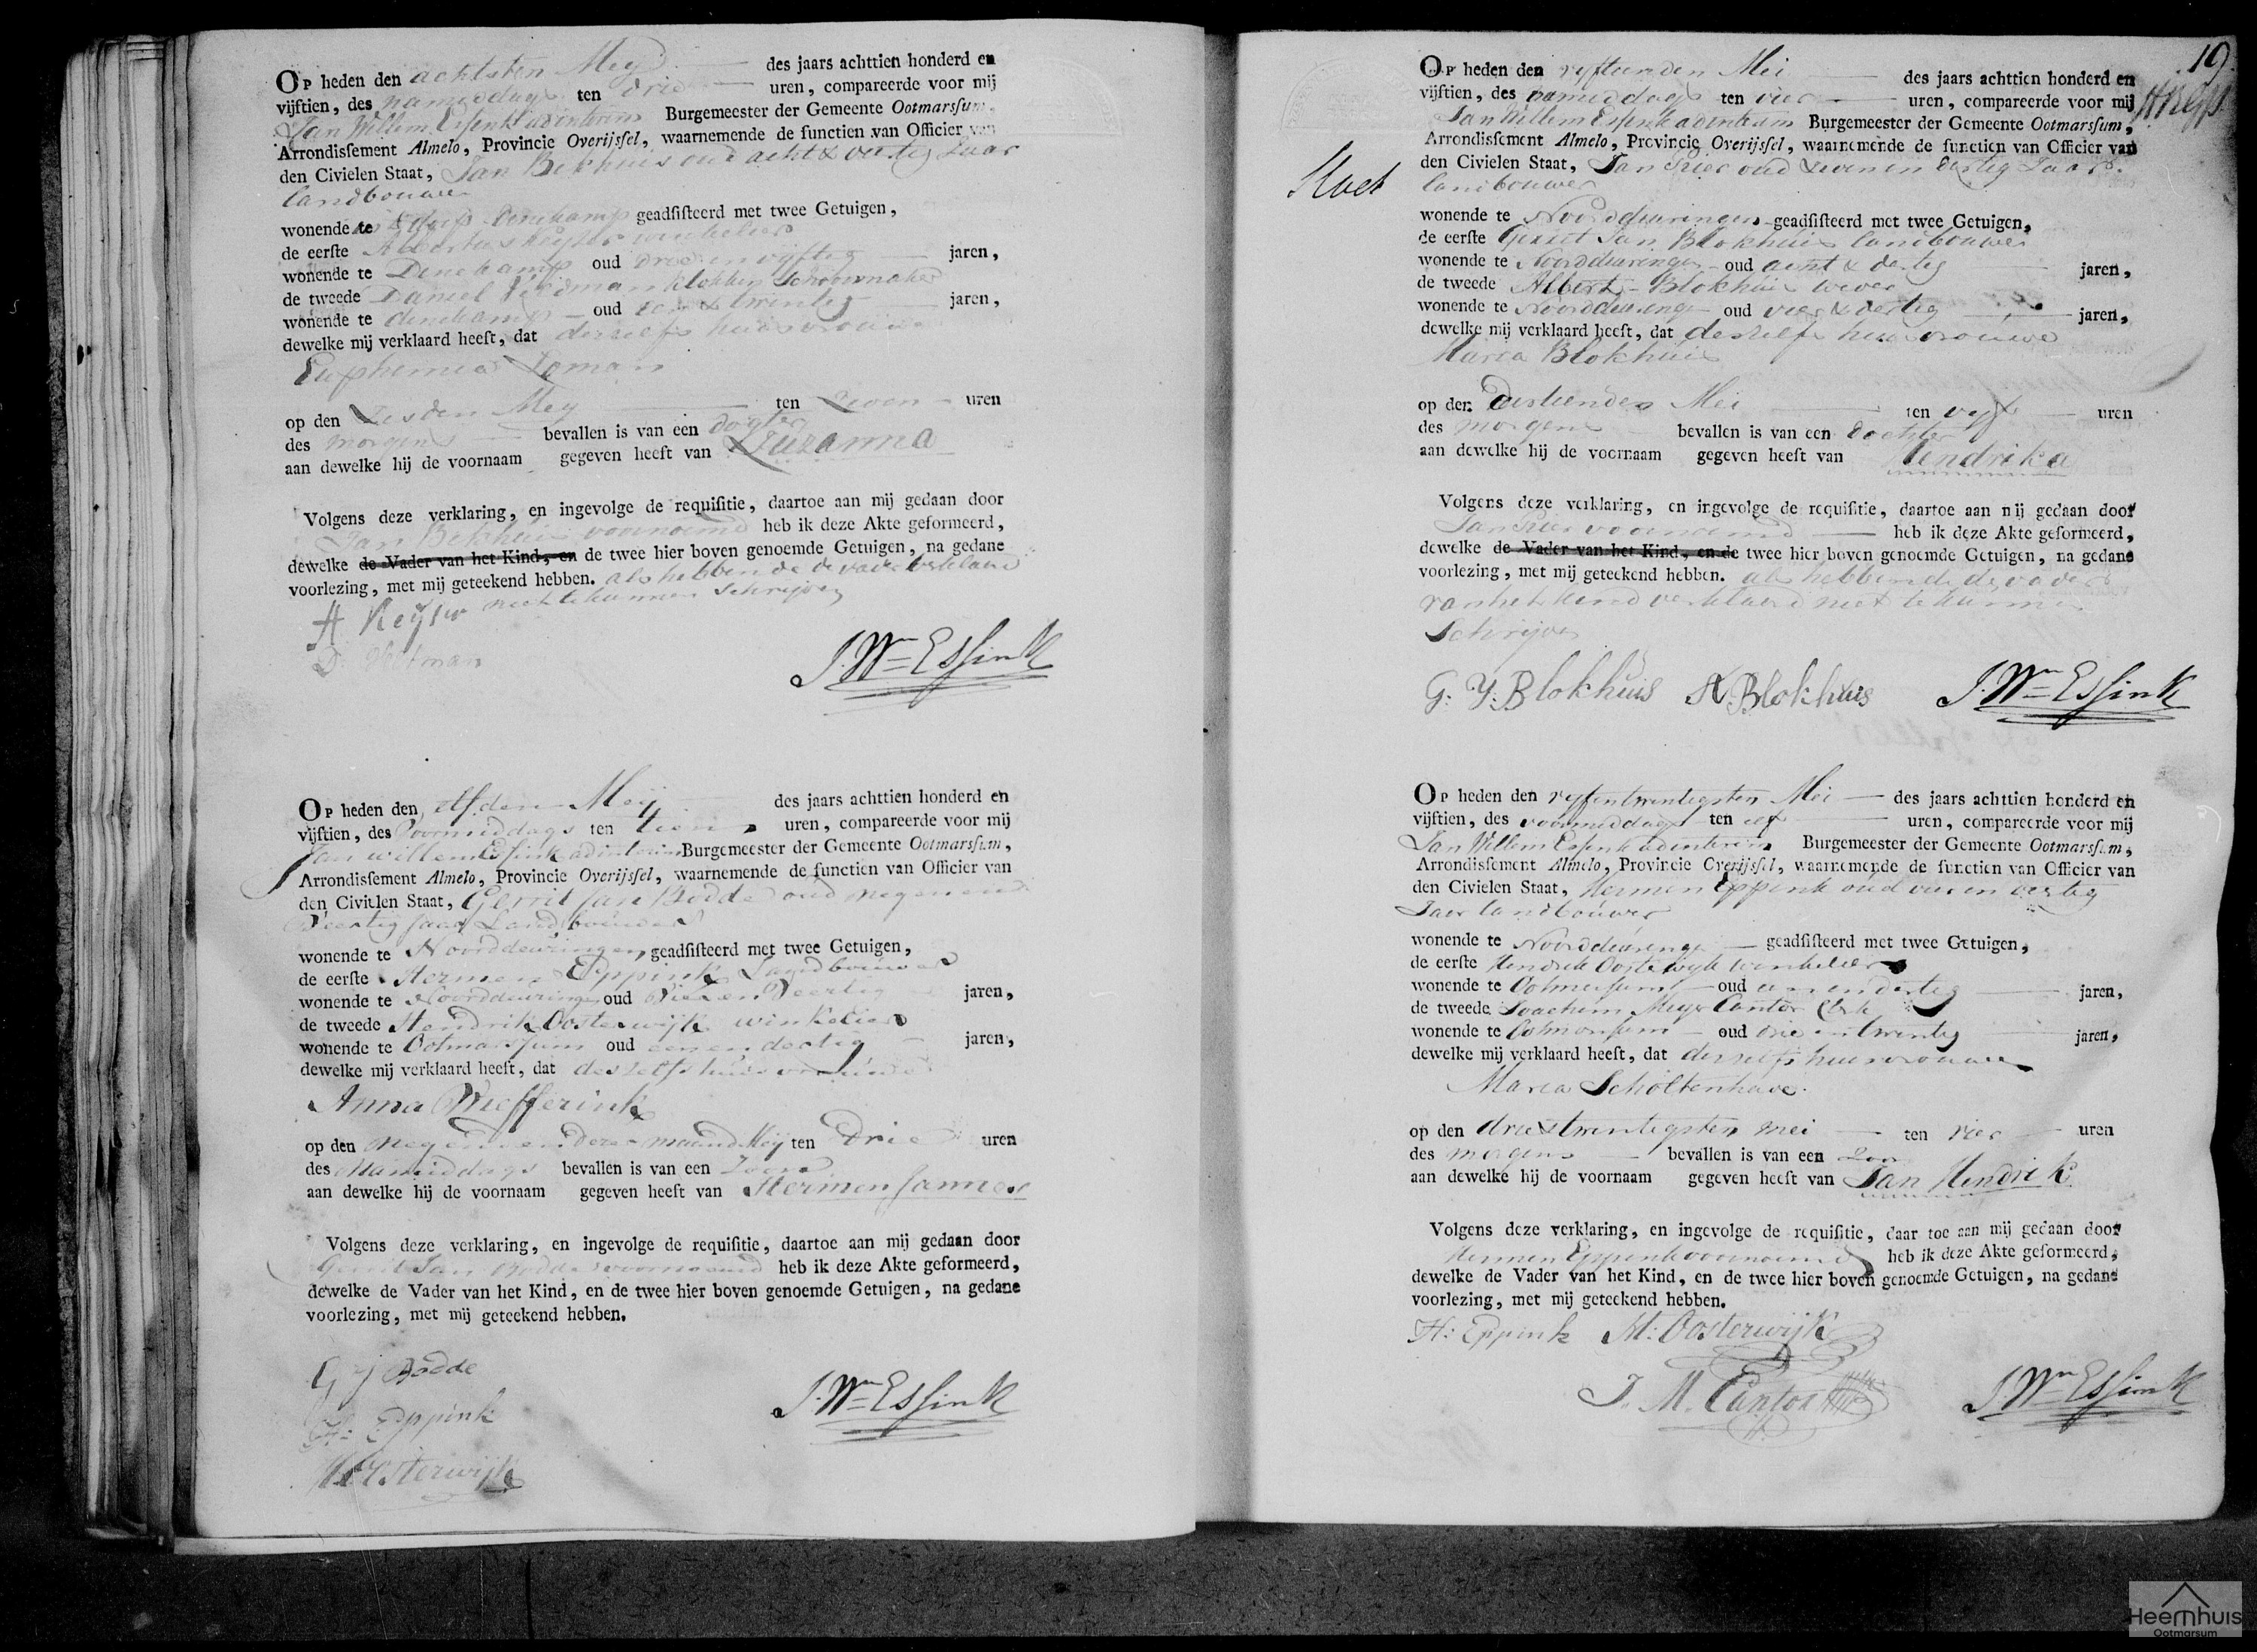 Op heden den achtsten Meij des jaars achttien honderd en
vijftien, des namiddags ten drie uren, compareerde voor mij
Jan Willem Essink adinterim Burgemeester der Gemeente Ootmarssum,
Arrondissement Almelo, Provincie Overijssel, waarnemende de functien van Officier van
den Civielen Staat, Jan Bekhuis oud acht & veertig Jaar
landbouwer
wonende te dorp Denekamp geadsisteerd met twee Getuigen,
de eerste Albertus Keyser winkelier
wonende te Denekamp oud drie en vijftig jaren,
de tweede Daniel klokken Schoenmaker
wonende te denekamp oud & twintig jaren,
dewelke mij verklaard heeft, dat deszelfs huisvrouwe
Euphemia Loman
op den Zesden Mey ten Zeven uren
des morgens bevallen is van een dogter
aan dewelke hij de voornaam gegeven heeft van Zuzanna
Volgens deze verklaring, en ingevolge de requisitie, daartoe aan mij gedaan door
Jan Bekhuis voornoemd heb ik deze Akte geformeerd,
dewelke de Vader van het Kind, en de twee hier boven genoemde Getuigen, na gedane
voorlezing, met mij geteekend hebben. als hebbende de vader verklaard
niet te kunnen Schrijven
A Keyser
D. Veltman
J. Wm Essink
Op heden den elfden Meij des jaars achttien honderd en
vijftien, des Voormiddags ten tien uren, compareerde voor mij
Jan willem Essink adinterim Burgemeester der Gemeente Ootmarssum,
Arrondissement Almelo, Provincie Overijssel, waarnemende de functien van Officier van
den Civielen Staat, Gerrit Jan Bodde oud negen en
Veertig Jaar Landbouwer
wonende te Noorddeuringen geadsisteerd met twee Getuigen,
de eerste Hermen Eppink Landbouwer
wonende te Noorddeuringe oud Vier en Veertig jaren,
de tweede Hendrik Oosterwijk winkelier
wonende te Ootmarssum oud een en dertig jaren,
dewelke mij verklaard heeft, dat deszelfs huisvrouwe
Anna Wiefferink
op den negenden dezer maand Meij ten Drie uren
des Namiddags bevallen is van een Zoon
aan dewelke hij de voornaam gegeven heeft van Hermen Jannes
Volgens deze verklaring, en ingevolge de requisitie, daartoe aan mij gedaan door
Gerrit Jan Bodde voornoemd heb ik deze Akte geformeerd,
dewelke de Vader van het Kind, en de twee hier boven genoemde Getuigen, na gedane
voorlezing, met mij geteekend hebben.
G J Bodde
H: Eppink
H Oosterwijk
J. Wm Essink
19
Op heden den vyftienden Mei des jaars achttien honderd en
vijftien, des namiddags ten vier uren, compareerde voor mij
Jan Willem Essink adinterim Burgemeester der Gemeente Ootmarssum,
Arrondissement Almelo, Provincie Overijssel, waarnemende de functien van Officier van
den Civielen Staat, Jan oud zeven en dertig Jaar
landbouwer
wonende te Noorddeuringen geadsisteerd met twee Getuigen,
de eerste Gerrit Jan Blokhuis landbouwer
wonende te Noorddeuringen oud acht & dertig jaren,
de tweede Albert Blokhuis wever
wonende te Noorddeuringe oud vier & dertig jaren,
dewelke mij verklaard heeft, dat deszelfs huisvrouwe
Maria Blokhuis
op den Dertienden Mei ten vyf uren
des morgens bevallen is van een dochter
aan dewelke hij de voornaam gegeven heeft van Hendrika
Volgens deze verklaring, en ingevolge de requisitie, daartoe aan mij gedaan door
Jan voornoemd heb ik deze Akte geformeerd,
dewelke de Vader van het Kind, en de twee hier boven genoemde Getuigen, na gedane
voorlezing, met mij geteekend hebben. als hebbende de vader
van het kind verklaard niet te kunnen
Schrijven
G: J: Blokhuis A Blokhuis J. Wm Essink
Op heden den vyfentwintigsten Mei des jaars achttien honderd en
vijftien, des voormiddags ten elf uren, compareerde voor mij
Jan Willem Essink adinterim Burgemeester der Gemeente Ootmarssum,
Arrondissement Almelo, Provincie Overijssel, waarnemende de functien van Officier van
den Civielen Staat, Hermen Eppink oud vier en veertig
Jaar landbouwer
wonende te Noorddeuringe geadsisteerd met twee Getuigen,
de eerste Hendrik Oosterwyk winkelier
wonende te Ootmarssum oud een en dertig jaren,
de tweede Joachem Meyer Cantor
wonende te Ootmarssum oud drie en twintig jaren,
dewelke mij verklaard heeft, dat deszelfs huisvrouwe
Maria Scholtenhave
op den drie & twintigsten mei ten vier uren
des morgens bevallen is van een Zoon
aan dewelke hij de voornaam gegeven heeft van Jan Hendrik
Volgens deze verklaring, en ingevolge de requisitie, daar toe aan mij gedaan door
Hermen Eppink voornoemd heb ik deze Akte geformeerd,
dewelke de Vader van het Kind, en de twee hier boven genoemde Getuigen, na gedane
voorlezing, met mij geteekend hebben.
H: Eppink H: Oosterwijk
J. M. Cantor J Wm Essink
Heemhuis
Ootmarsum